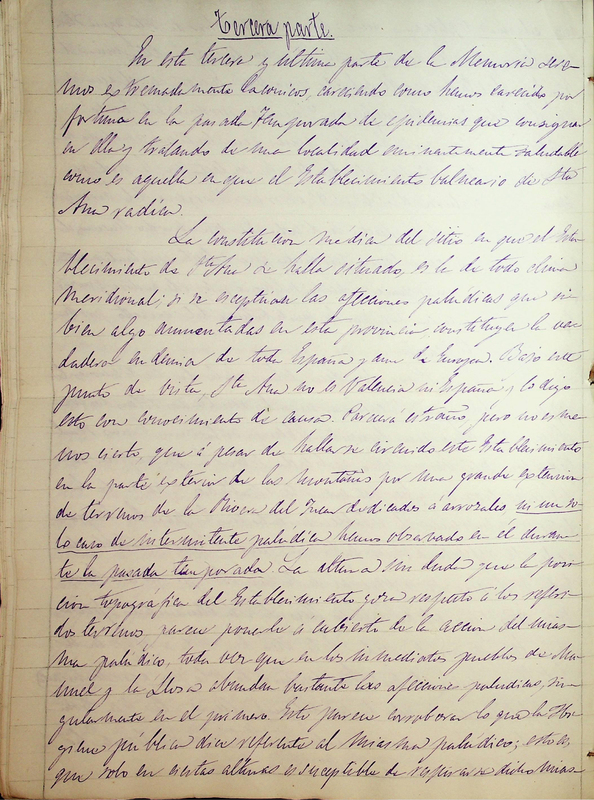 Tercera parte.
En esta tercera y última parte de la Memoria sere-
mos extremadamente laconicos, careciendo como hemos carecido por
fortuna en la pasada Temporada de epidemias que consignar
en ella y tratando de una localidad eminentemente saludable
como es aquella en que el Establecimiento balneario de Sta
Ana radica.
La constitucion medica del sitio en que el Esta-
blecimiento de Sta Ana se halla situado, es la de todo clima
meridional; si se esceptuan las afecciones palúdicas que si
bien algo aumentadas en esta provincia constituyen la ver-
dadera endemia de toda España y aun de Europa. Bajo este
punto de vista, Sta Ana no es Valencia ni España y lo digo
esto con conocimiento de causa. Parecerá estraño pero no es me-
nos cierto, que á pesar de hallarse circuido este Establecimiento
en la parte exterior de las montañas por una grande extension
de terrenos de la Rivera del Jucar dedicados á arrozales ni un so-
lo caso de intermitente palúdica hemos observado en él duran-
te la pasada temporada. La altura sin duda que la posi-
cion topográfica del Establecimiento goza respecto á los referi-
dos terrenos parece ponerle á cubierto de la accion del mias-
ma palúdico, toda vez que en los inmediatos pueblos de Ma-
nuel y la Llosa abundan bastante las afecciones palúdicas, sin-
gularmente en el primero. Esto parece corroborar lo que la Hi-
giene pública dice referente al miasma palúdico; esto es,
que solo en ciertas alturas es susceptible de respirarse dicho mias-